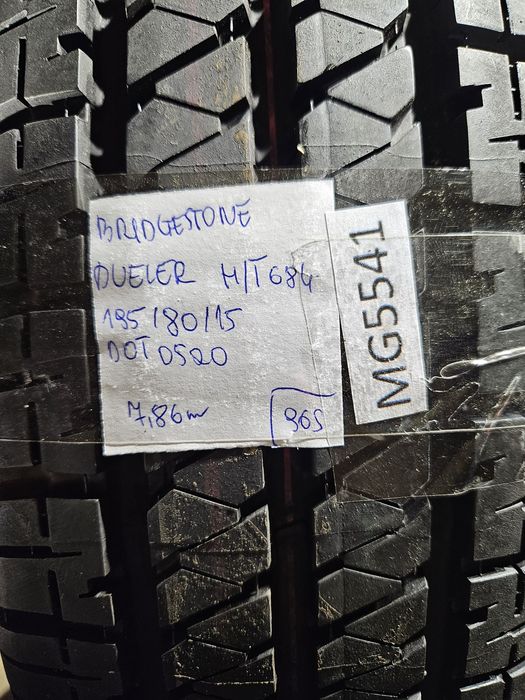 BRIDGESTONE
DUELER H/T 684
195/80/15
DOT 0520
7,86m
96S
MG5541